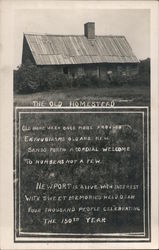 THE OLD HOMESTEAD
OLD HOME WEEK ONCE MORE AROUSED
ENTHUSIASMS OLD AND NEW
BANDS FORTH A CORDIAL WELCOME
TO NUMBERS NOT A FEW.
NEWPORT IS ALIVE WITH INTEREST
WITH SWEET MEMORIES HELD DEAR
FOUR THOUSAND PEOPLE CELEBRATING
THE 150TH YEAR